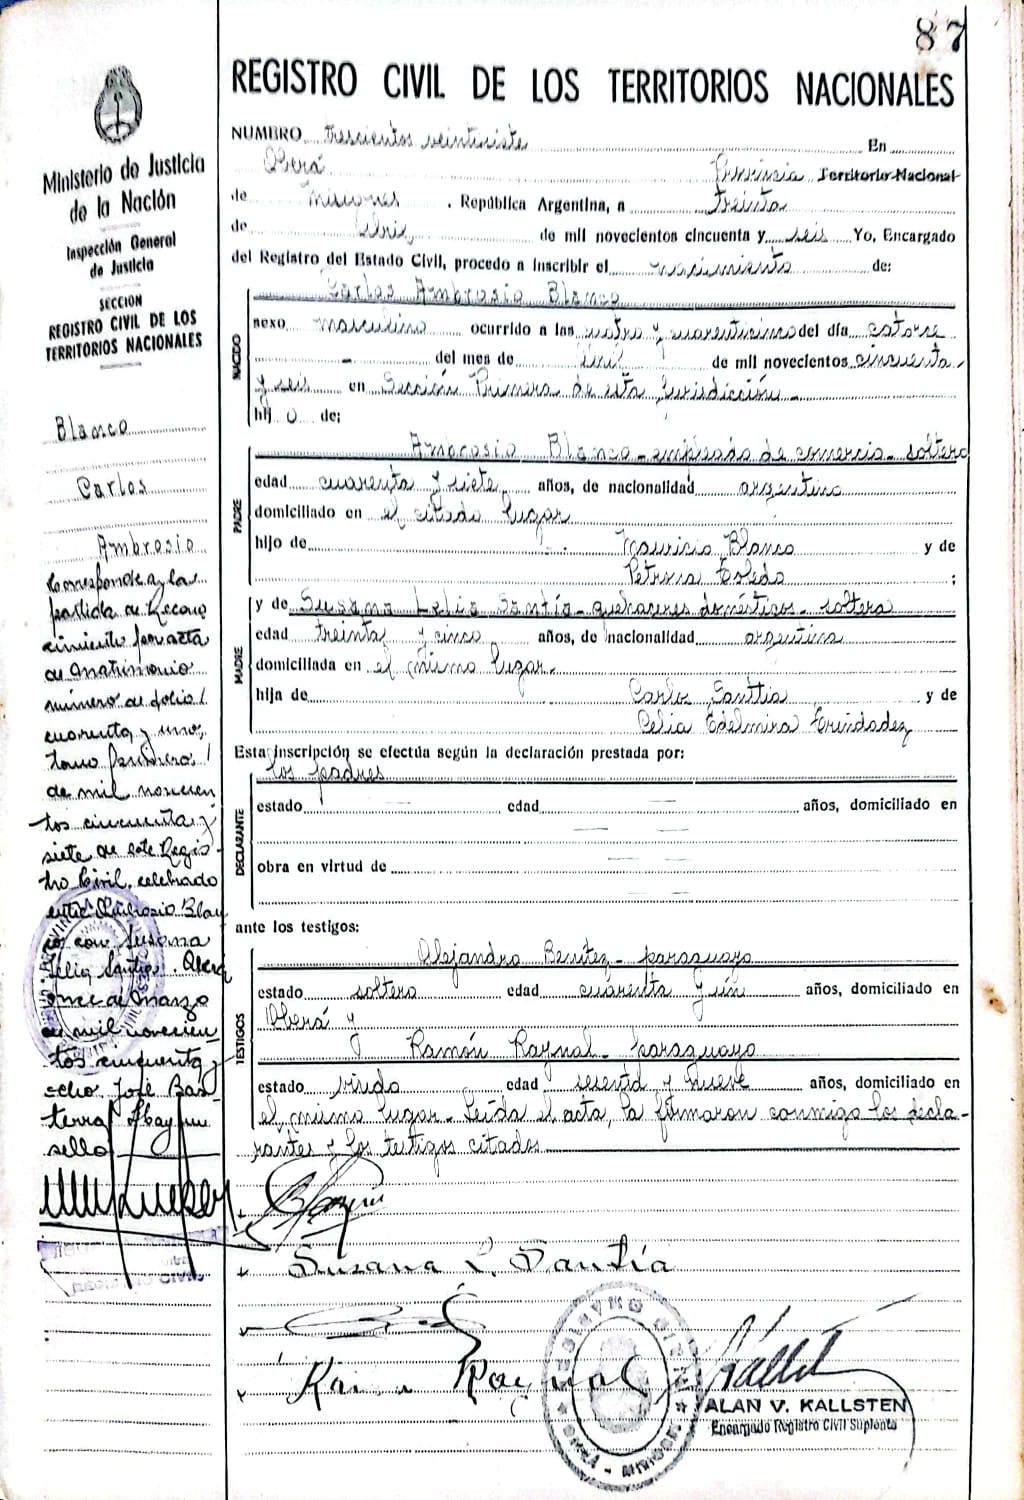 87
REGISTRO CIVIL DE LOS TERRITORIOS NACIONALES
Ministerio de Justicia
de la Nación
Inspección General
de Justicia
SECCION
REGISTRO CIVIL DE LOS
TERRITORIOS NACIONALES
Blanco
Carlos
Ambrosio
Corresponde a la
partida de Recono
cimiento por acta
de Matrimonio
número de folio
cuarenta y uno,
tomo primero
de mil novecien
tos cincuenta y
siete de este Regis-
tro Civil, celebrado
entre Ambrosio Blan
co con Susana
Lelia Santía. Oberá
once de Marzo
de mil novecien
tos cincuenta y
ocho José Bas
terra
sello
NUMERO trescientos veintisiete En
Oberá Provincia Territorio Nacional
de Misiones, República Argentina, a treinta
de Abril de mil novecientos cincuenta y seis Yo, Encargado
del Registro del Estado Civil, procedo a inscribir el nacimiento de:
NACIDO
Carlos Ambrosio Blanco
sexo masculino ocurrido a las cuatro y del día catorce
- del mes de abril de mil novecientos cincuenta
y seis en Sección Primera de esta jurisdicción
hij o de:
PADRE
Ambrosio Blanco - empleado de comercio - soltero
edad cuarenta y siete años, de nacionalidad argentino
domiciliado en el citado lugar
hijo de Mauricio Blanco y de
Petrona Toledo ;
MADRE
y de Susana Lelia Santía - quehaceres domésticos - soltera
edad treinta y cinco años, de nacionalidad argentina
domiciliada en el mismo lugar.
hija de Carlos Santtia y de
Celia Edelmira Trindadez
Esta inscripción se efectúa según la declaración prestada por:
DECLARANTE
los padres
estado — edad — años, domiciliado en
— —
obra en virtud de — —
— —
ante los testigos:
TESTIGOS
Alejandro Benítez - paraguayo
estado soltero edad cuarenta y un años, domiciliado en
Oberá y
Ramón Raynal - paraguayo
estado viudo edad sesenta y nueve años, domiciliado en
el mismo lugar - Leída el acta, la firmaron conmigo los decla-
rantes y los testigos citados
Susana L. Santía
Raynal
REGISTRO CIVIL
OBERA - MISIONES
ALAN V. KALLSTEN
Encargado Registro Civil Suplente